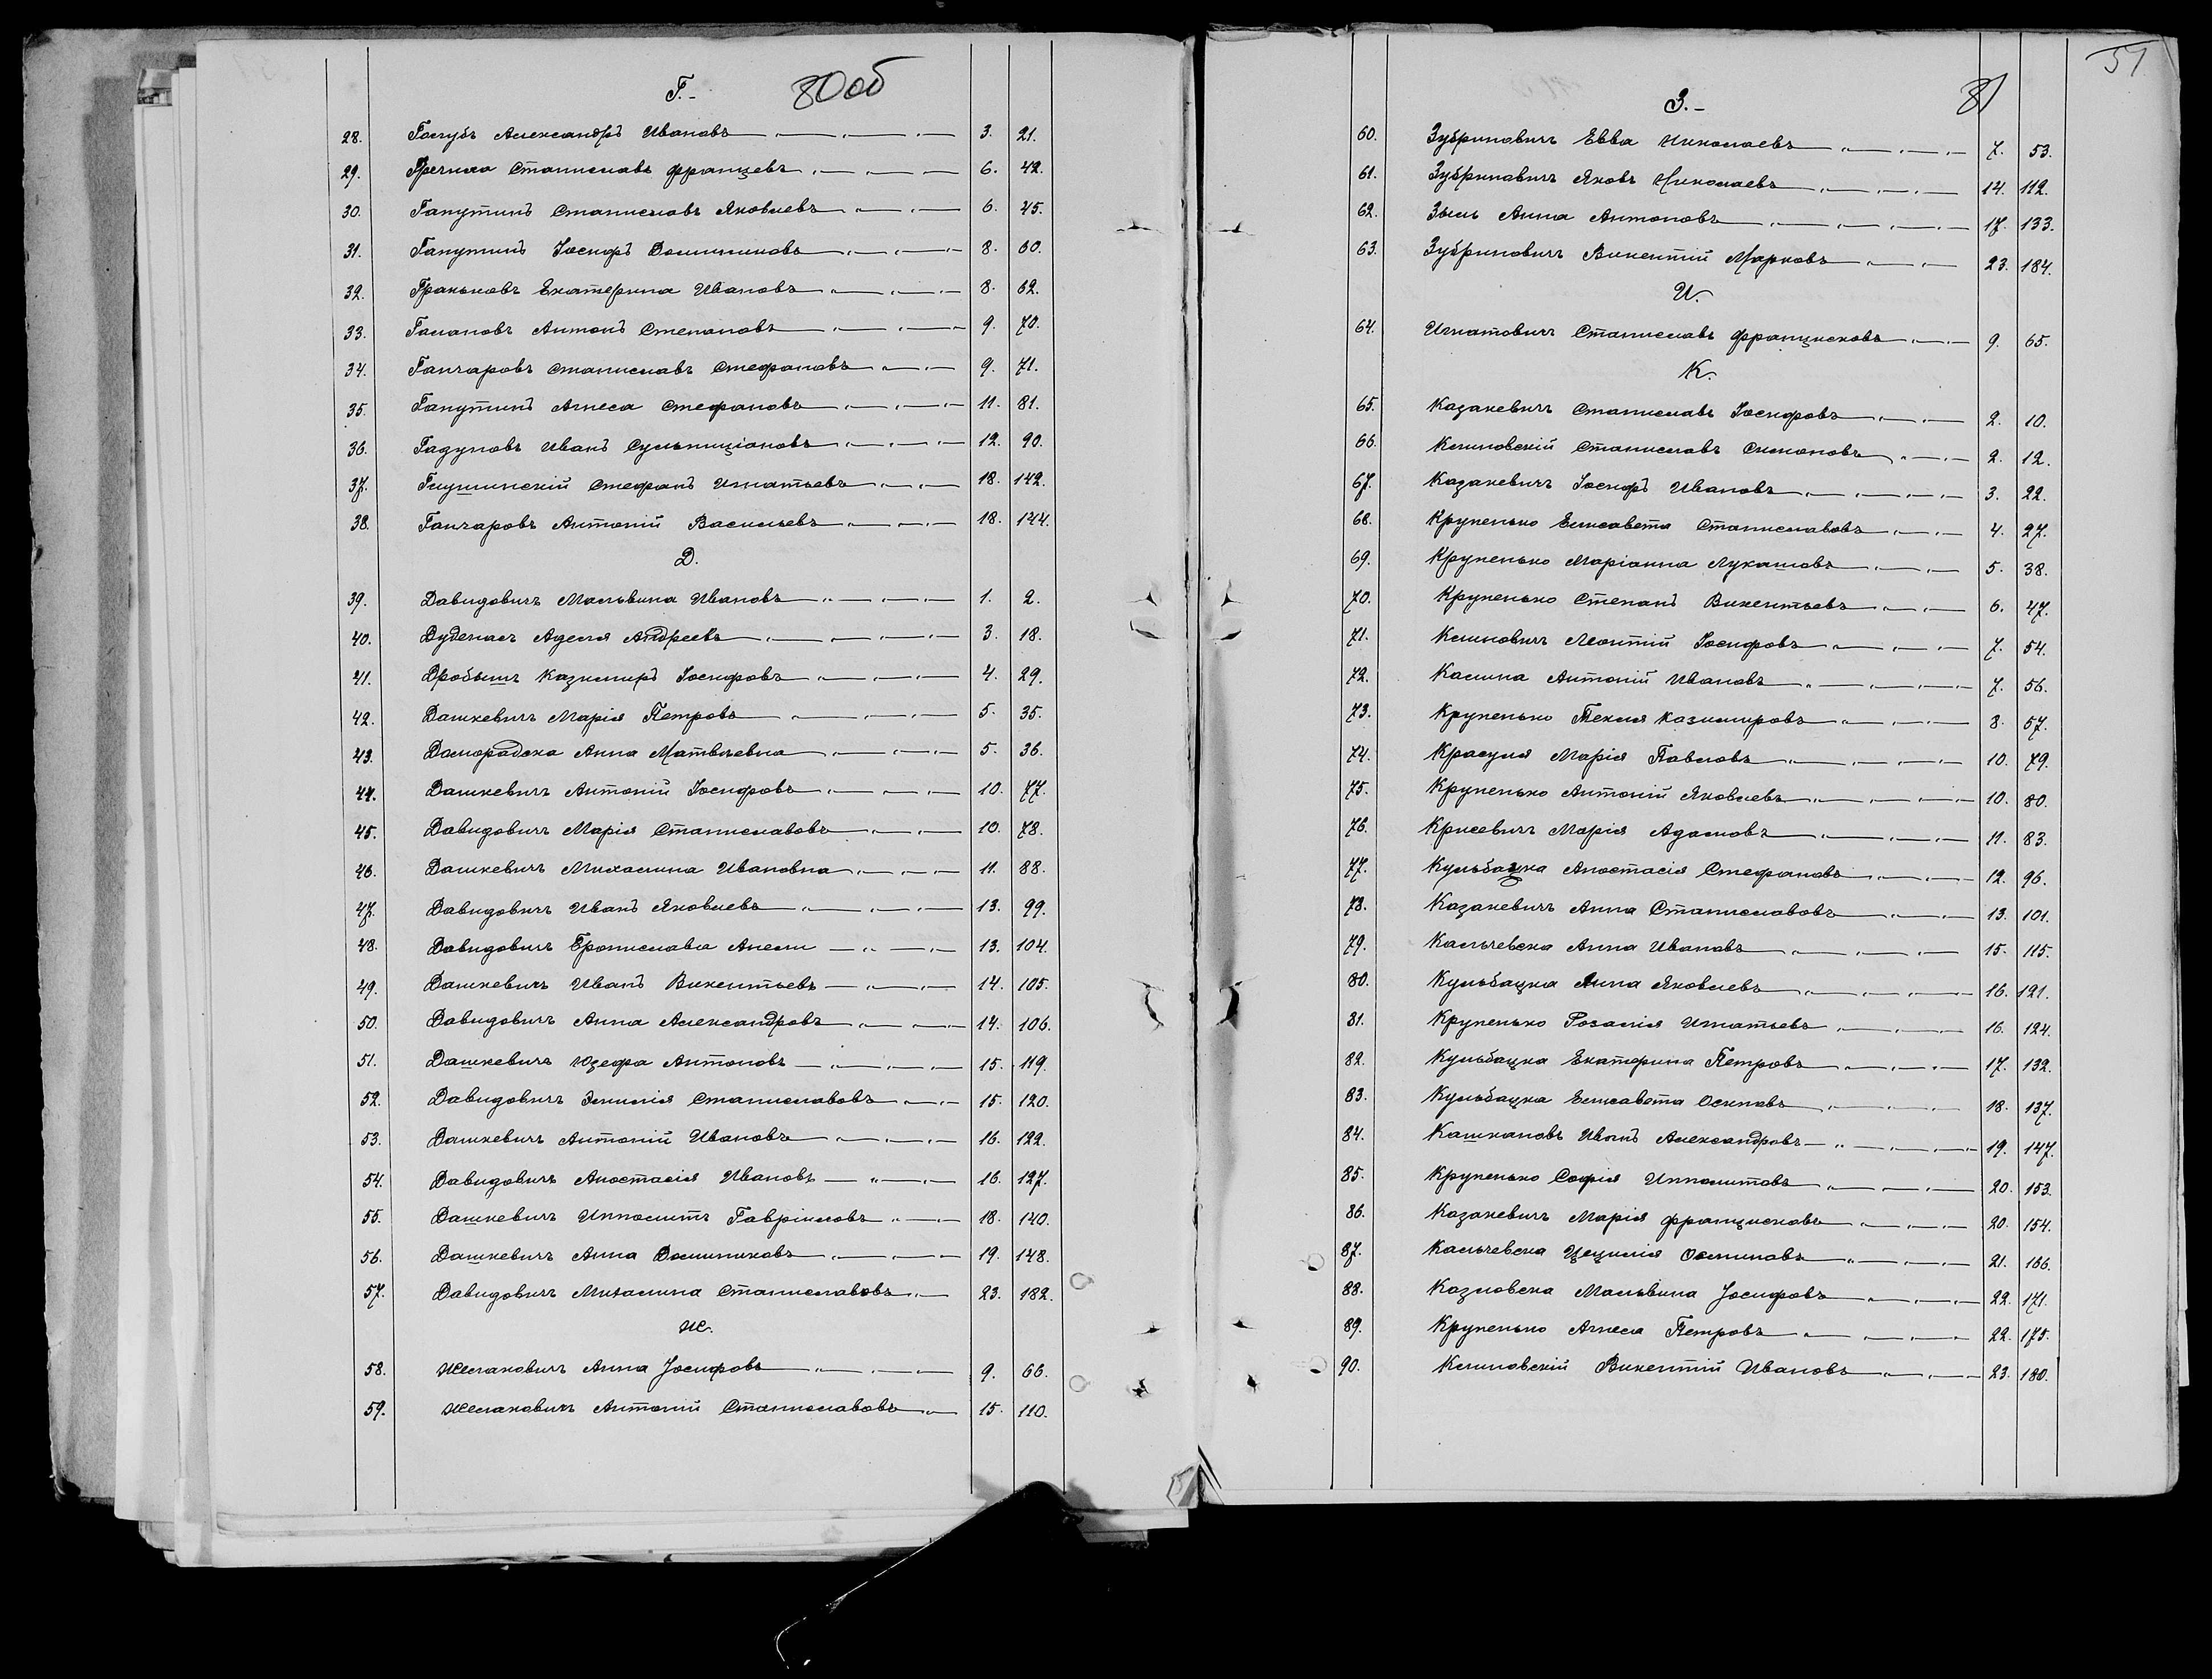 Г.-
80об
28. Голубъ Александръ Ивановъ 3. 21.
29. Гречиха Станиславъ Францевъ 6. 42.
30. Гапутинъ Станиславъ Яковлевъ 6. 45.
31. Гапутинъ Іосифъ Доминиковъ 8. 60.
32. Граньковъ Екатерина Ивановъ 8. 62.
33. Галановъ Антонъ Степановъ 9. 70.
34. Ганчаровъ Станиславъ Стефановъ 9. 71.
35. Гапутинъ Агнеса Стефановъ 11. 81.
36. Гадуновъ Иванъ Сульпиціановъ 12. 90.
37. Глушинскій Стефанъ Игнатьевъ 18. 142.
38. Ганчаровъ Антоній Васильевъ 18. 144.
Д.
39. Давидовичъ Мальвина Ивановъ 1. 2.
40. Дуденасъ Аделя Андреевъ 3. 18.
41. Дробышъ Казимиръ Іосифовъ 4. 29.
42. Дашкевичъ Марія Петровъ 5. 35.
43. Доморадска Анна Матвѣевна 5. 36.
44. Дашкевичъ Антоній Іосифовъ 10. 77.
45. Давидовичъ Марія Станиславовъ 10. 78.
46. Дашкевичъ Михалина Ивановна 11. 88.
47. Давидовичъ Иванъ Яковлевъ 13. 99.
48. Давидовичъ Бронислава Анели 13. 104.
49. Дашкевичъ Иванъ Викентьевъ 14. 105.
50. Давидовичъ Анна Александровъ 14. 106.
51. Дашкевичъ Юзефа Антоновъ 15. 119.
52. Давидовичъ Эмилія Станиславовъ 15. 120.
53. Дашкевичъ Антоній Ивановъ 16. 122.
54. Давидовичъ Анастасія Ивановъ 16. 127.
55. Дашкевичъ Ипполитъ Гавріиловъ 18. 140.
56. Дашкевичъ Анна Доминиковъ 19. 148.
57. Давидовичъ Михалина Станиславовъ 23. 182.
Ж.
58. Желановичъ Анна Іосифовъ 9. 66.
59. Желановичъ Антоній Станиславовъ 15. 110.
51
З.-
81
60. Зубриновичъ Евва Николаевъ 7. 53.
61. Зубриновичъ Яковъ Николаевъ 14. 112.
62. Зыль Анна Антоновъ 17. 133.
63. Зубриновичъ Викентій Марковъ 23. 184.
И.
64. Игнатовичъ Станиславъ Францисковъ 9. 65.
К.
65. Казакевичъ Станиславъ Іосифовъ 2. 10.
66. Климовскій Станиславъ Симоновъ 2. 12.
67. Казакевичъ Іосифъ Ивановъ 3. 22.
68. Крупенько Елисавета Станиславовъ 4. 27.
69. Крупенько Маріанна Лукашовъ 5. 38.
70. Крупенько Степанъ Викентьевъ 6. 47.
71. Климовичъ Леонтій Іосифовъ 7. 54.
72. Калина Антоній Ивановъ 7. 56.
73. Крупенько Текля Казимировъ 8. 57.
74. Красуля Марія Павловъ 10. 79.
75. Крупенько Антоній Яковлевъ 10. 80.
76. Крисевичъ Марія Адамовъ 11. 83.
77. Кульбацка Анастасія Стефановъ 12. 96.
78. Казакевичъ Анна Станиславовъ 13. 101.
79. Кальчевска Анна Ивановъ 15. 115.
80. Кульбацка Анна Яковлевъ 16. 121.
81. Крупенько Розалія Игнатьевъ 16. 124.
82. Кульбацка Екатерина Петровъ 17. 132.
83. Кульбацка Елисавета Осиповъ 18. 137.
84. Кашкановъ Иванъ Александровъ 19. 147.
85. Крупенько Софія Ипполитовъ 20. 153.
86. Казакевичъ Марія Францисковъ 20. 154.
87. Кальчевска Цецилія 21. 166.
88. Казловска Мальвина Іосифовъ 22. 171.
89. Крупенько Агнеса Петровъ 22. 175.
90. Климовскій Викентій Ивановъ 23. 180.